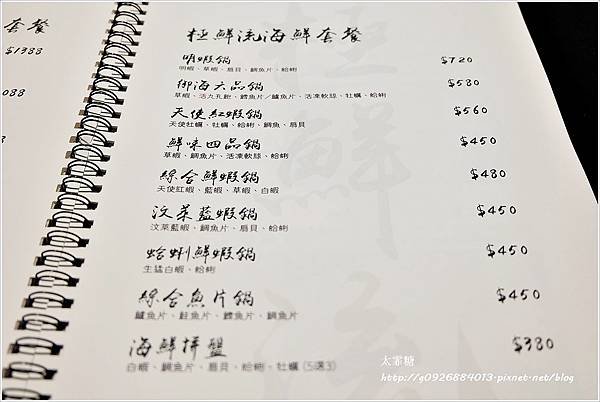 套餐
$1388
088
極鮮流海鮮套餐
明蝦鍋 $720
明蝦、草蝦、扇貝、鯛魚片、蛤蜊
御海六品鍋 $580
草蝦、活九孔鮑、鱈魚片／鱸魚片、活凍軟絲、牡蠣、蛤蜊
天使紅蝦鍋 $560
天使紅蝦、牡蠣、蛤蜊、鯛魚、扇貝
鮮味四品鍋 $450
草蝦、鯛魚片、活凍軟絲、蛤蜊
綜合鮮蝦鍋 $480
天使紅蝦、藍蝦、草蝦、白蝦
汶萊藍蝦鍋 $450
汶萊藍蝦、鯛魚片、扇貝、蛤蜊
蛤蜊鮮蝦鍋 $450
生猛白蝦、蛤蜊
綜合魚片鍋 $450
鱸魚片、鮭魚片、鱈魚片、鯛魚片
海鮮拼盤 $380
白蝦、鯛魚片、扇貝、蛤蜊、牡蠣(5選3)
極鮮流
太霏糖
http://q0926884013.pixnet.net/blog